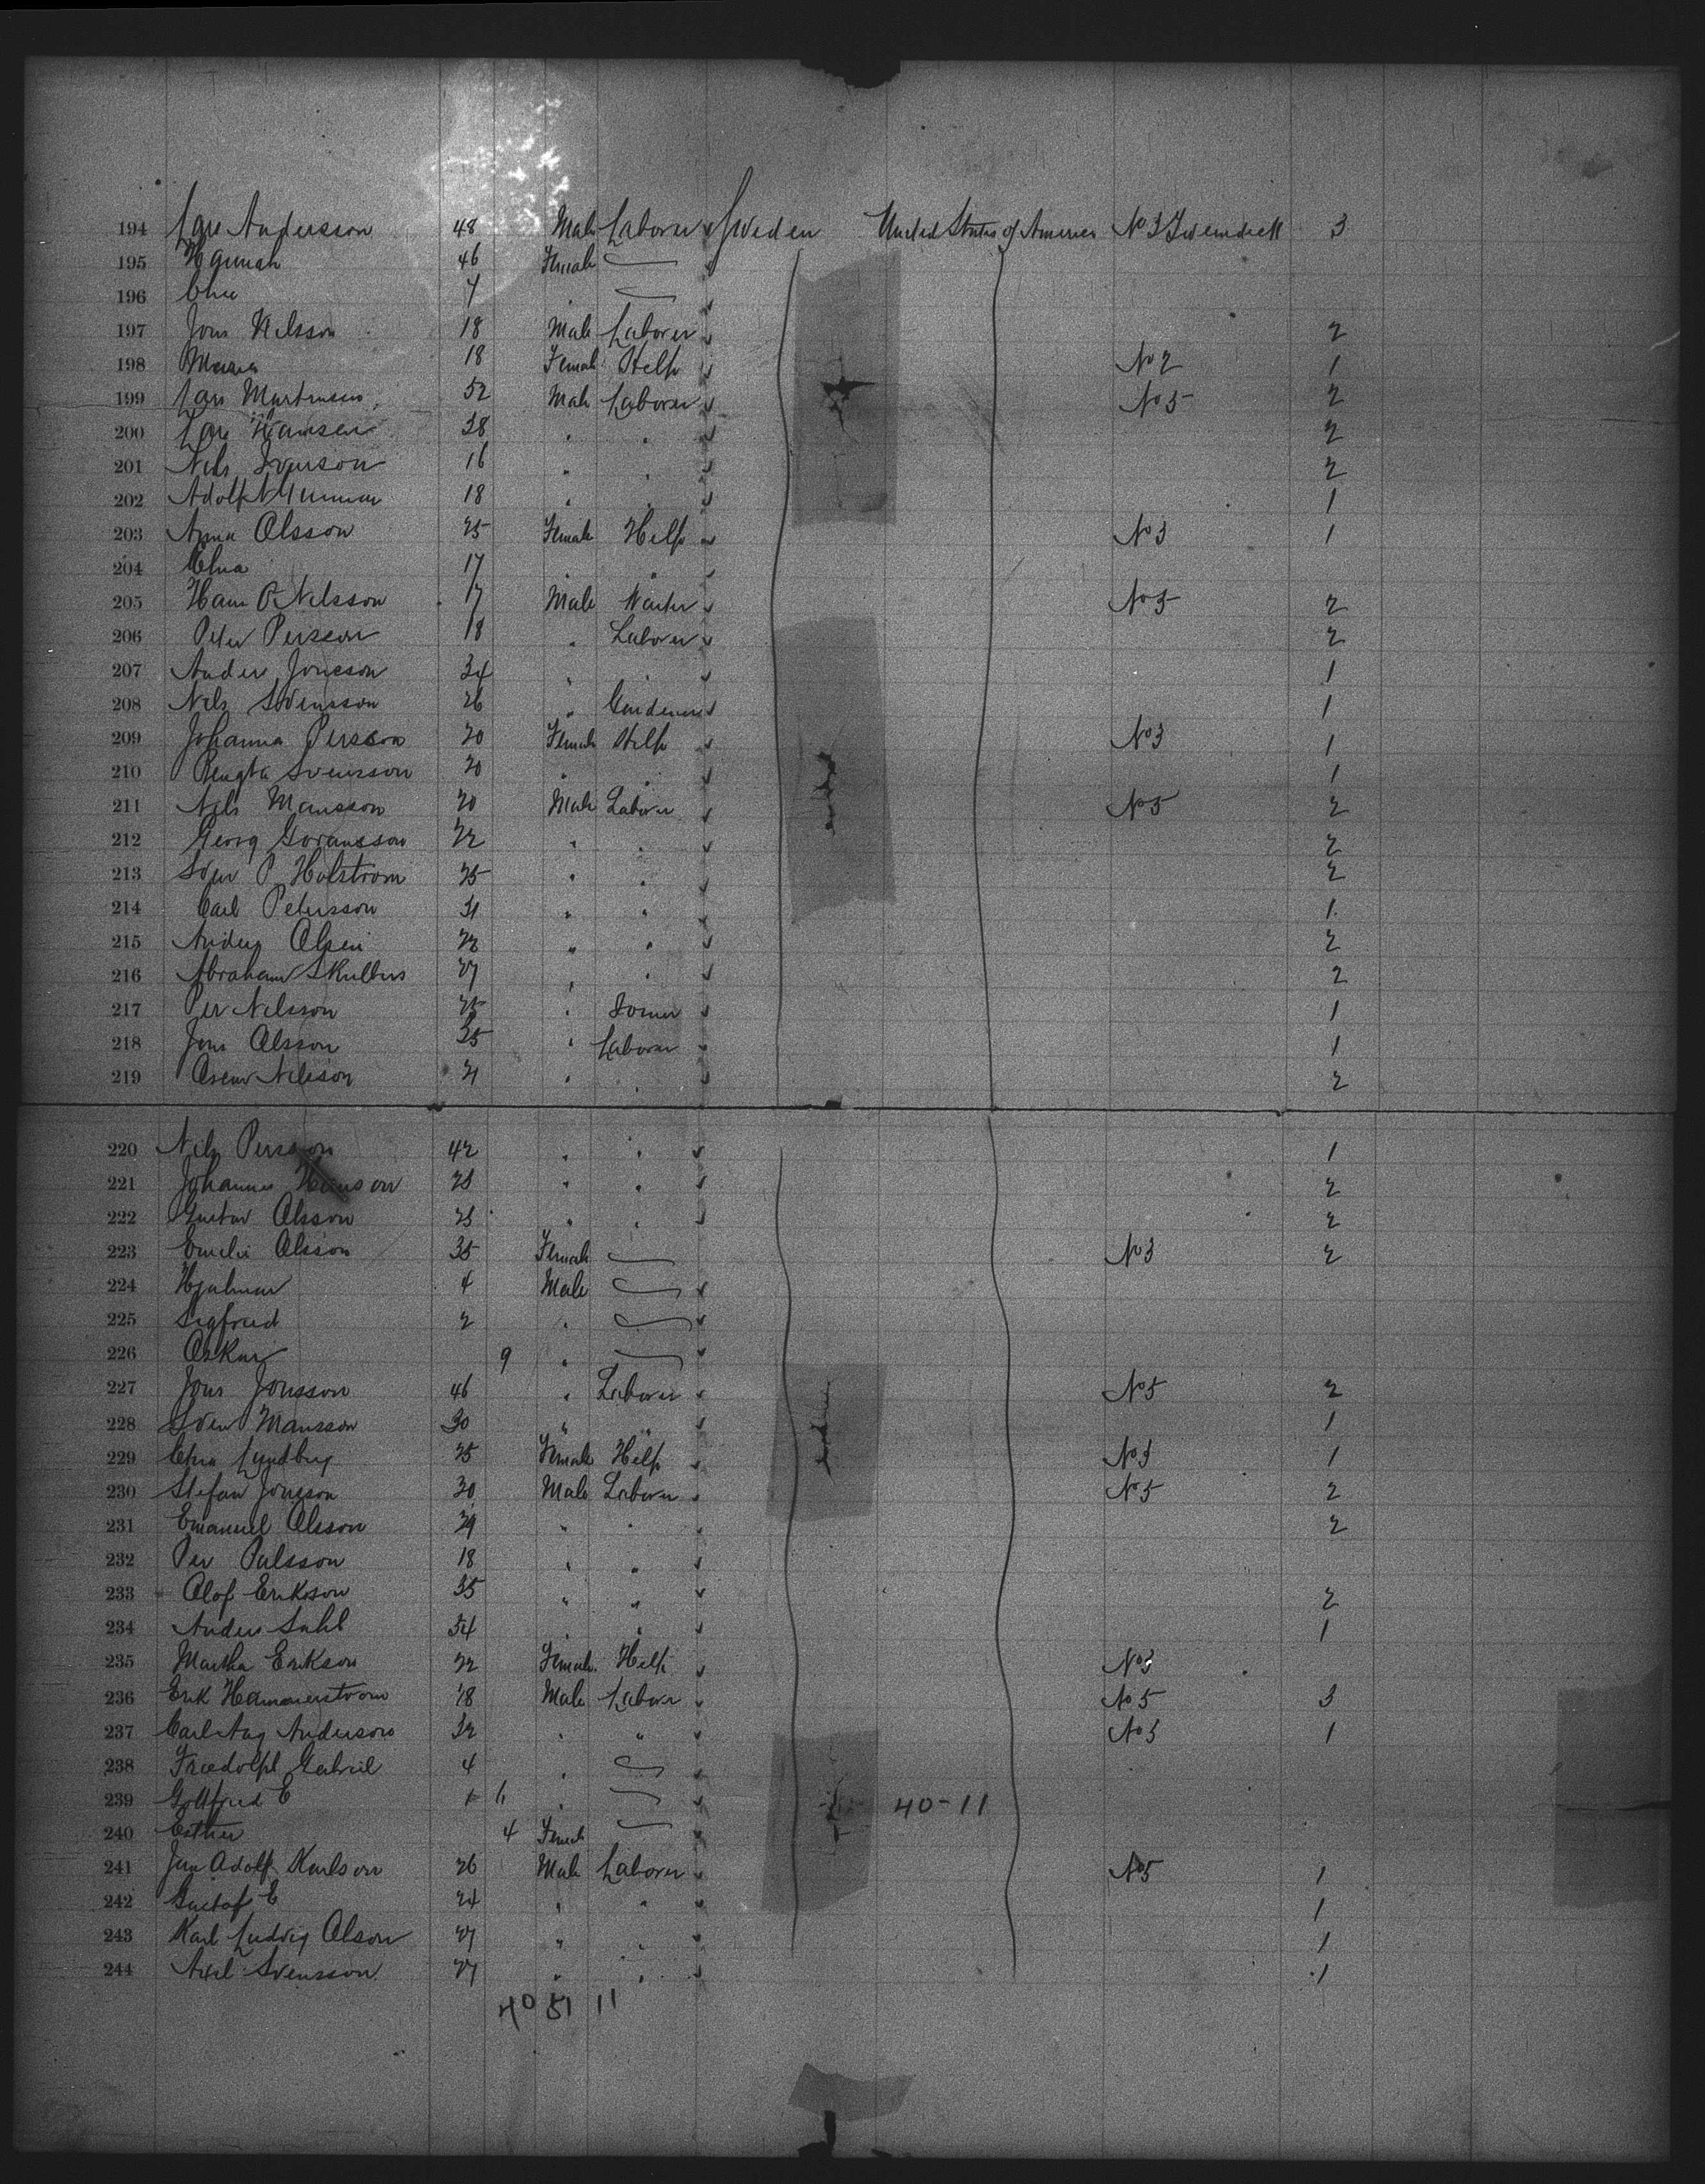 194 Lars Andersson 48 Male Laborer Sweden United States of America No 3 3
195 Hannah 46 Female
196 7
197 Jons Nilsson 18 Male Laborer 2
198 Maria 18 Female Help No 2 1
199 Lars 52 Male Laborer No 5 2
200 Lars Hansen 38 " " 2
201 Nils 16 " " 2
202 Adolf 18 " " 1
203 Anna Olsson 25 Female Help No 3 1
204 Elna 17 " "
205 Hans P Nilsson 17 Male No 5 2
206 Peter Persson 18 " Laborer 2
207 Anders Jonsson 34 " " 1
208 Nils Svensson 26 " Gardener 1
209 Johanna Persson 20 Female Help No 3 1
210 Bengta Svensson 20 " " 1
211 Nils Mansson 20 Male Laborer No 5 2
212 Georg Goransson 22 " " 2
213 Sven P Holstrom 25 " " 2
214 Carl Petersson 31 " " 1
215 Anders Olsen 22 " " 2
216 Abraham 27 " " 2
217 Per Nilsson 25 " 1
218 Jons Olsson 35 " Laborer 1
219 Nilsson 21 " " 2
220 Nils Persson 42 " " 1
221 Johannes Hanson " " 2
222 Gustav Olsson " " 2
223 Emelie Olsson 35 Female No 3 2
224 Hjalmar 4 Male
225 Sigfried 2 "
226 Oskar 9 "
227 Jons Jonsson 46 " Laborer No 5 2
228 Sven Mansson 30 " " 1
229 Lyndberg 25 Female Help No 3 1
230 Stefan Jonsson 30 Male Laborer No 5 2
231 Emanuel Olsson 29 " " 2
232 Per Palsson 18 " "
233 Olof Erikson 35 " " 2
234 Anders Sahl 34 " " 1
235 Martha Erikson 22 Female Help No 3
236 Erik Hammerstrom 18 Male Laborer No 5 3
237 Carl Aug Anderson 32 " " No 3 1
238 Fredolph Gabriel 4 "
239 Gottfried E 6 "
40-11
240 Esther 4 Female
241 Jan Adolf Karlson 26 Male Laborer No 5 1
242 Gustof E 24 " " 1
243 Karl Ludvig Olson 27 " " 1
244 Axel Svensson 27 " " 1
40 51 11